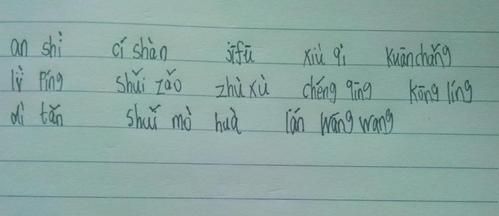 àn shì cí shàn jī fū xiù qì kuān chǎng
lǜ píng shuǐ zǎo zhù xù chéng qīng kōng líng
dì tǎn shuǐ mò huà lǎn wāng wang